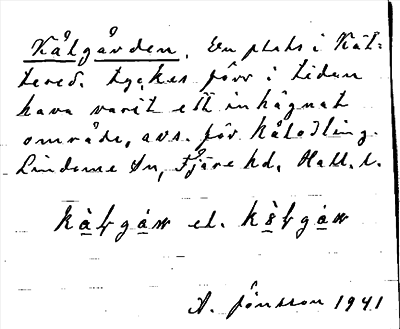 Kålgården. En plats i Kät-
tered. tyckes förr i tiden
hava varit ett inhägnat
område, avs. för kålodling.
Lindome Sn, Fjäre hd, Hall. l.
el.
A. Jönsson 1941